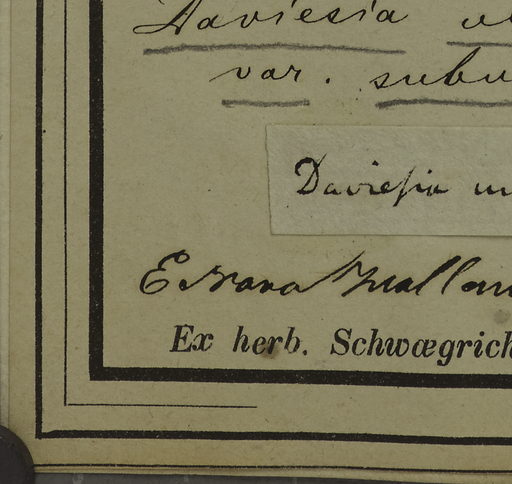 Daviesia ul
var. subu
Daviesia u
E Nova Hollan
Ex herb. Schwœgrich